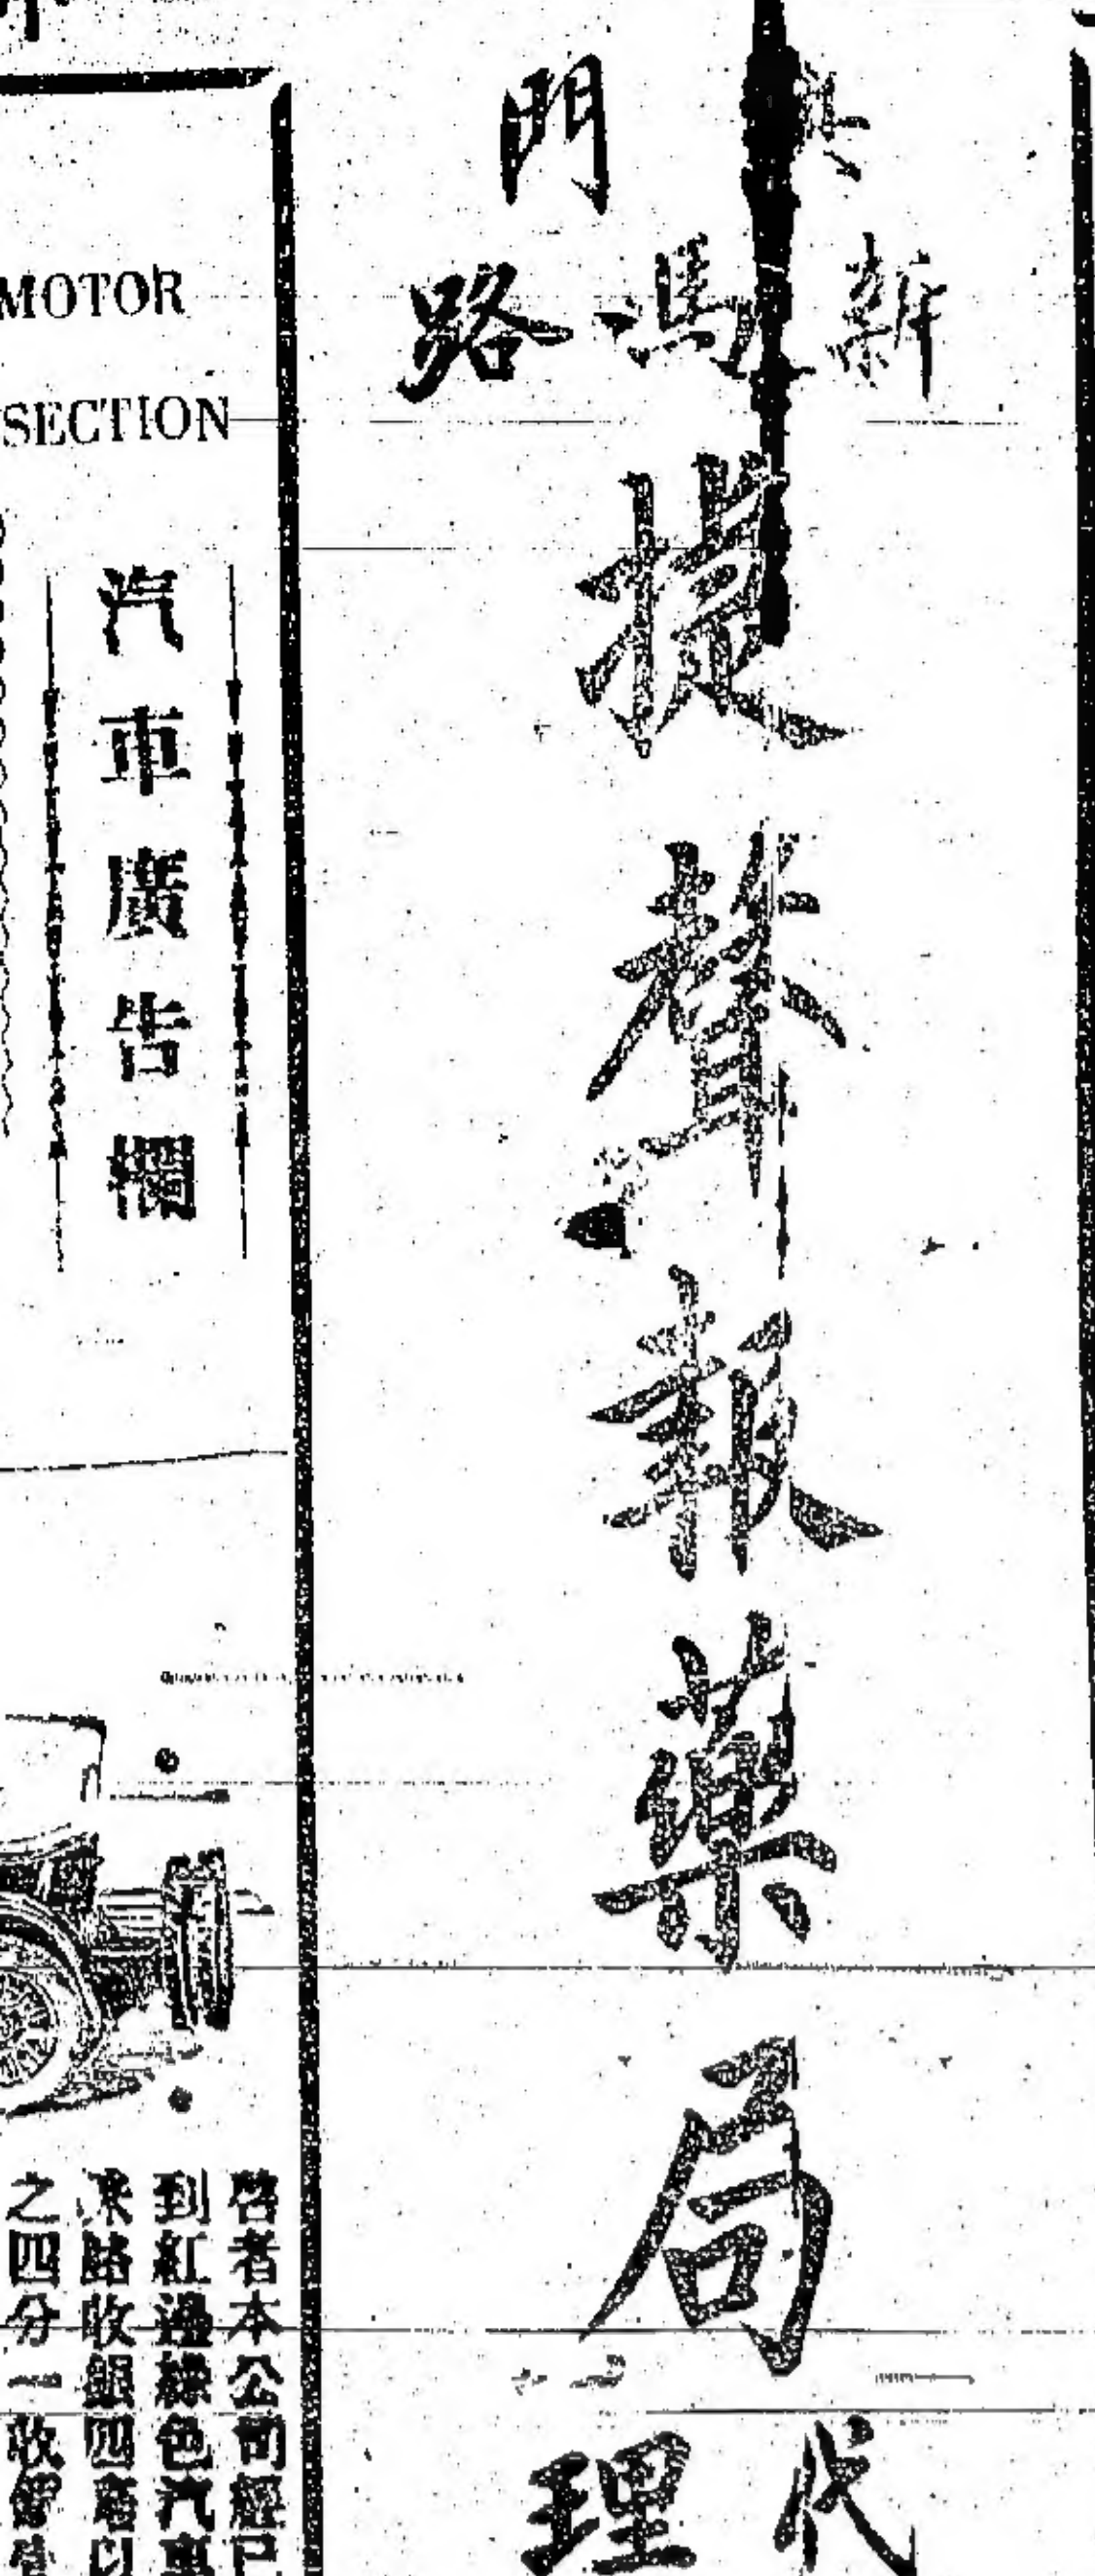 新
馮
路
門
捷聲報藥局
代
理
MOTOR
SECTION
汽車廣告欄
啓者本公司經已
到紅邊綠色汽車
來路收銀四毫以
之四分一收